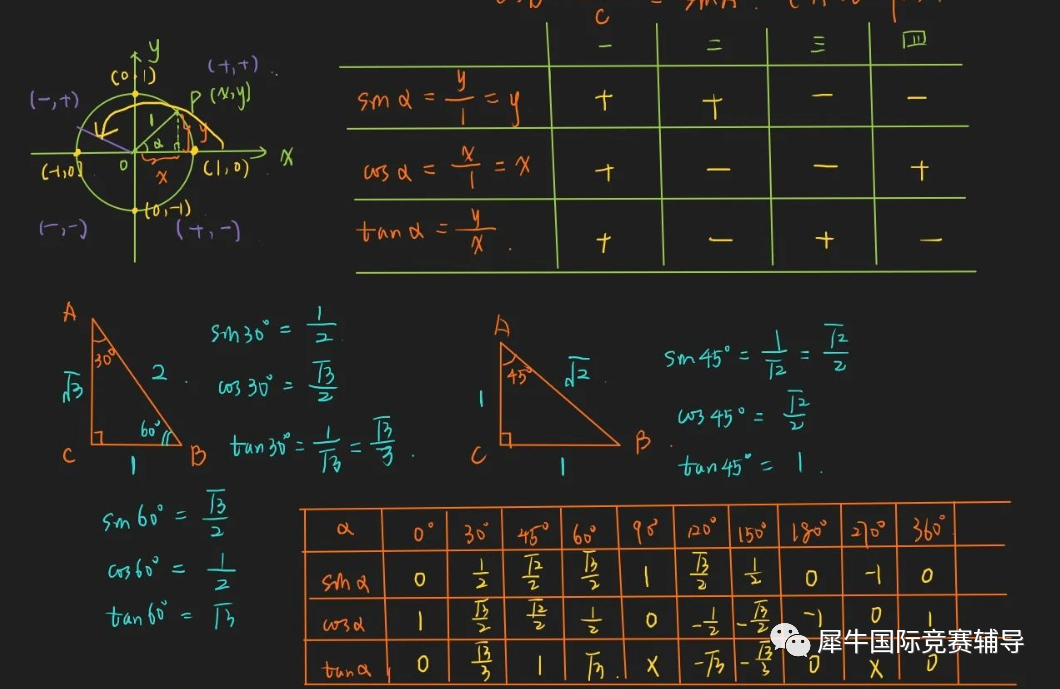 c
一 二 三 四
sinα = y/1 = y + + − −
cosα = x/1 = x + − − +
tanα = y/x . + − + −
y
(0,1)
(+,+)
(-,+)
P (x,y)
1
α
y
0
x
x
(-1,0)
(1,0)
(0,-1)
(-,-)
(+,-)
A
30°
√3
2
60°
C
1
B
sin30° = 1/2
cos30° = √3/2
tan30° = 1/√3 = √3/3 .
A
45°
√2
1
C
1
B
sin45° = 1/√2 = √2/2
cos45° = √2/2
tan45° = 1 .
sin60° = √3/2
cos60° = 1/2
tan60° = √3
α 0° 30° 45° 60° 90° 120° 150° 180° 270° 360°
sinα 0 1/2 √2/2 √3/2 1 √3/2 1/2 0 -1 0
cosα 1 √3/2 √2/2 1/2 0 -1/2 -√3/2 -1 0 1
tanα 0 √3/3 1 √3 . x -√3 -√3/3 0 x 0
犀牛国际竞赛辅导